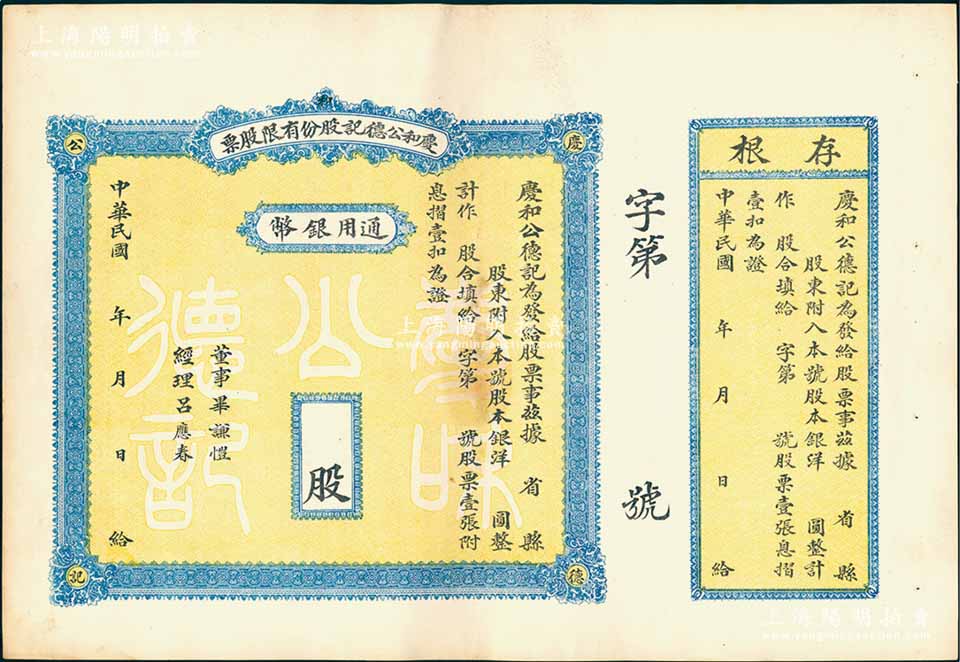 上海陽明拍賣
www.yangmingauction.com
存根
慶和公德記為發給股票事茲據 省 縣
股東附入本號股本銀洋 圓整計
作 股合填給 字第 號股票壹張息摺
壹扣為證
中華民國 年 月 日 給
字第 號
慶和公德記股份有限股票
慶
和
公
德
記
通用銀幣
慶和公德記為發給股票事茲據 省 縣
股東附入本號股本銀洋 圓整
計作 股合填給 字第 號股票壹張附
息摺壹扣為證
股
董事畢謙愷
經理呂應春
中華民國 年 月 日 給
慶和
公
德記
上海陽明拍賣
www.yangmingauction.com
上海陽明拍賣
www.yangmingauction.com